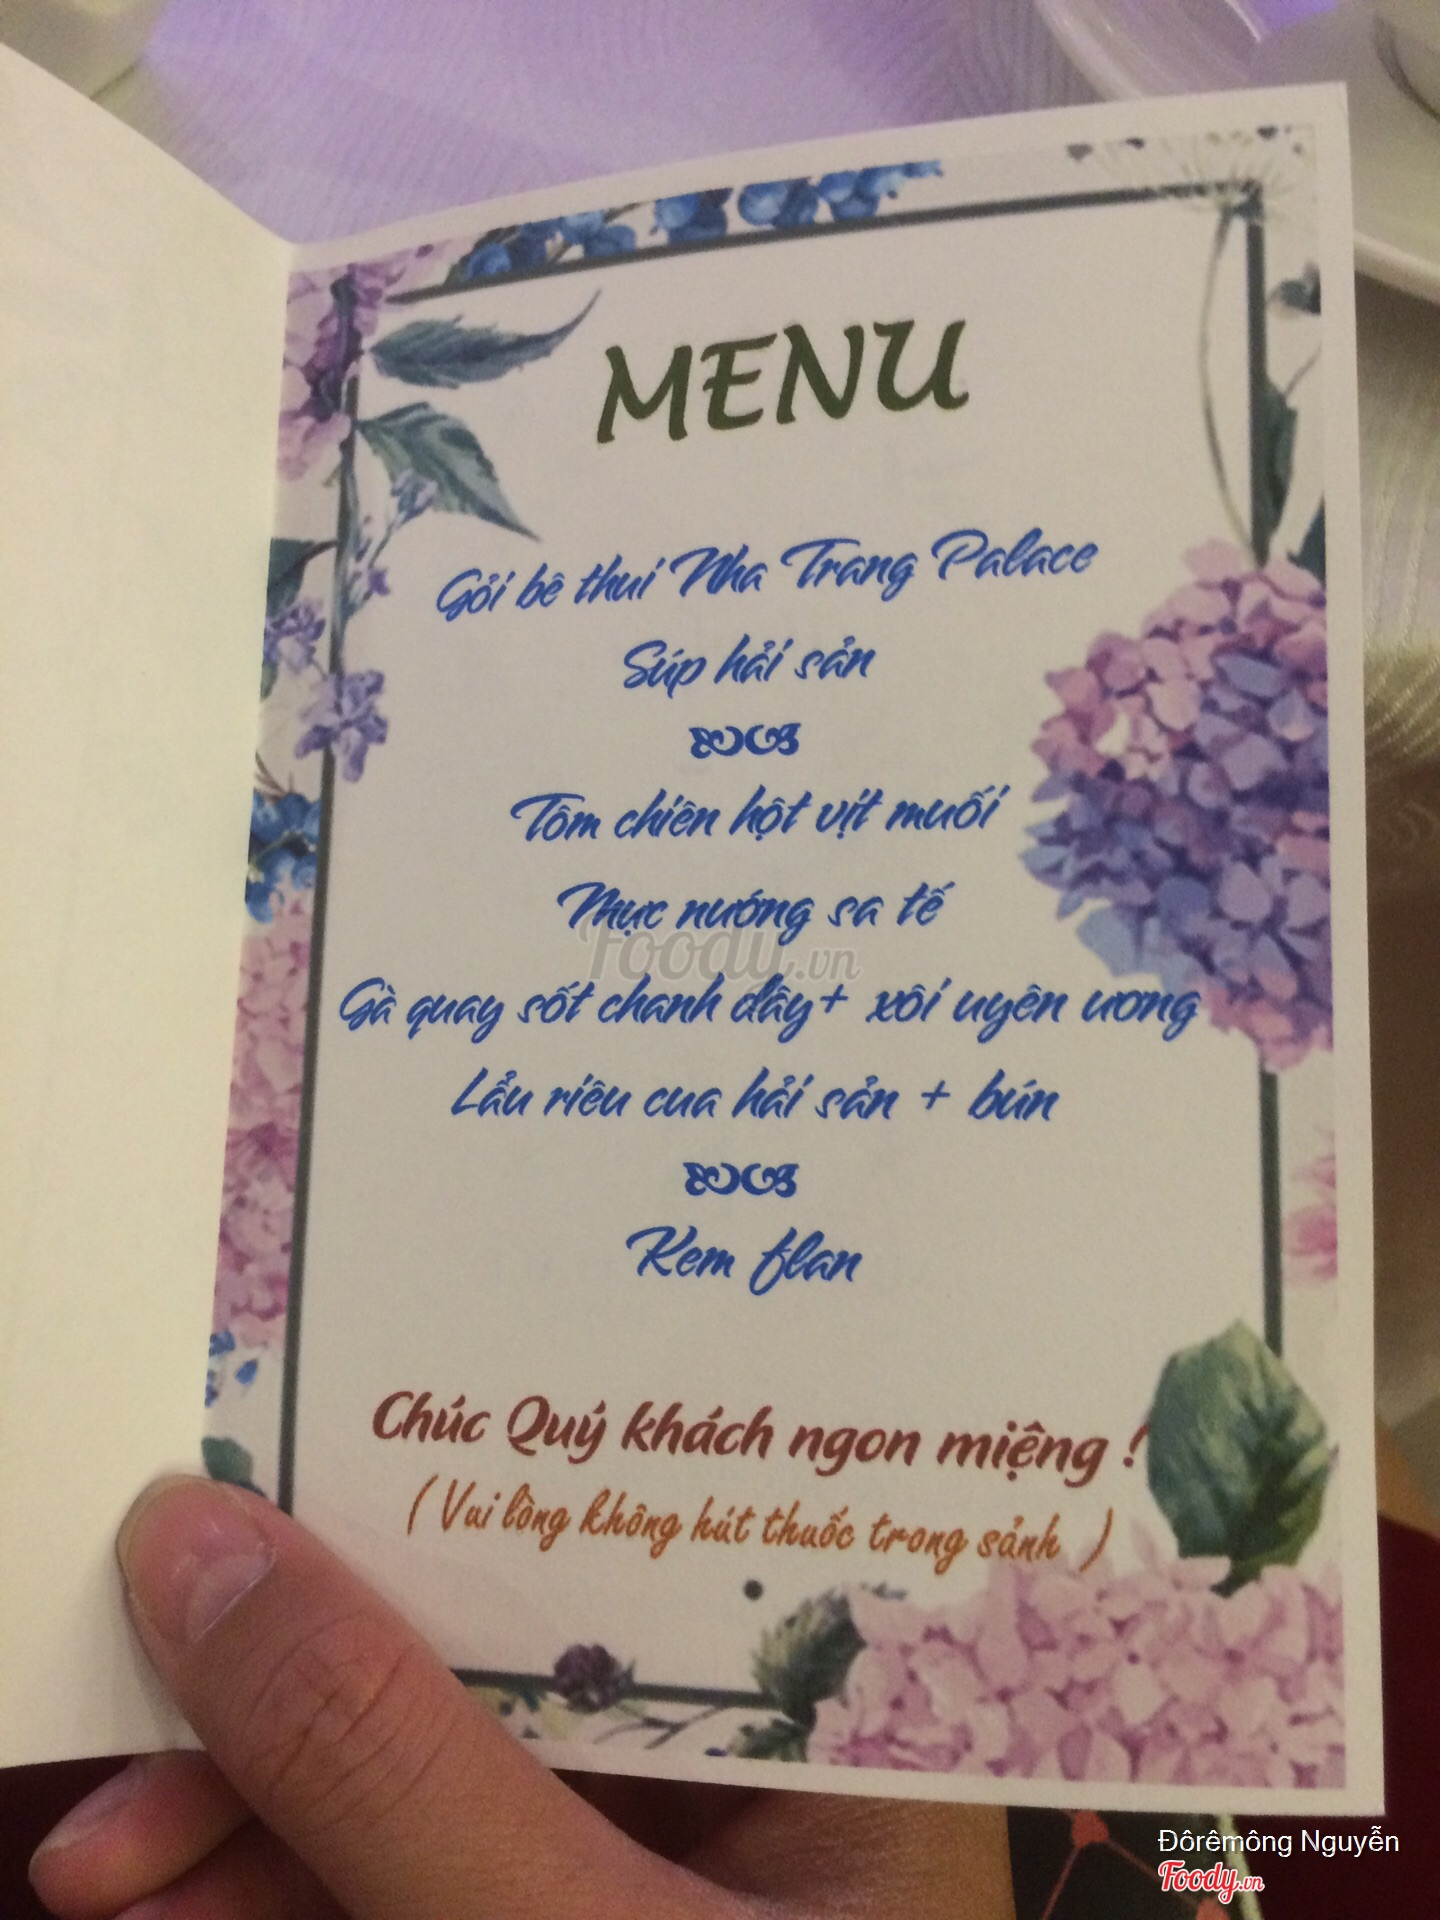 MENU
Gỏi bê thui Nha Trang Palace
Súp hải sản
Tôm chiên hột vịt muối
Mực nướng sa tế
Foody.vn
Gà quay sốt chanh dây+ xôi uyên ương
Lẩu riêu cua hải sản + bún
Kem flan
Chúc Quý khách ngon miệng !
( Vui lòng không hút thuốc trong sảnh )
Đôrêmông Nguyễn
Foody.vn